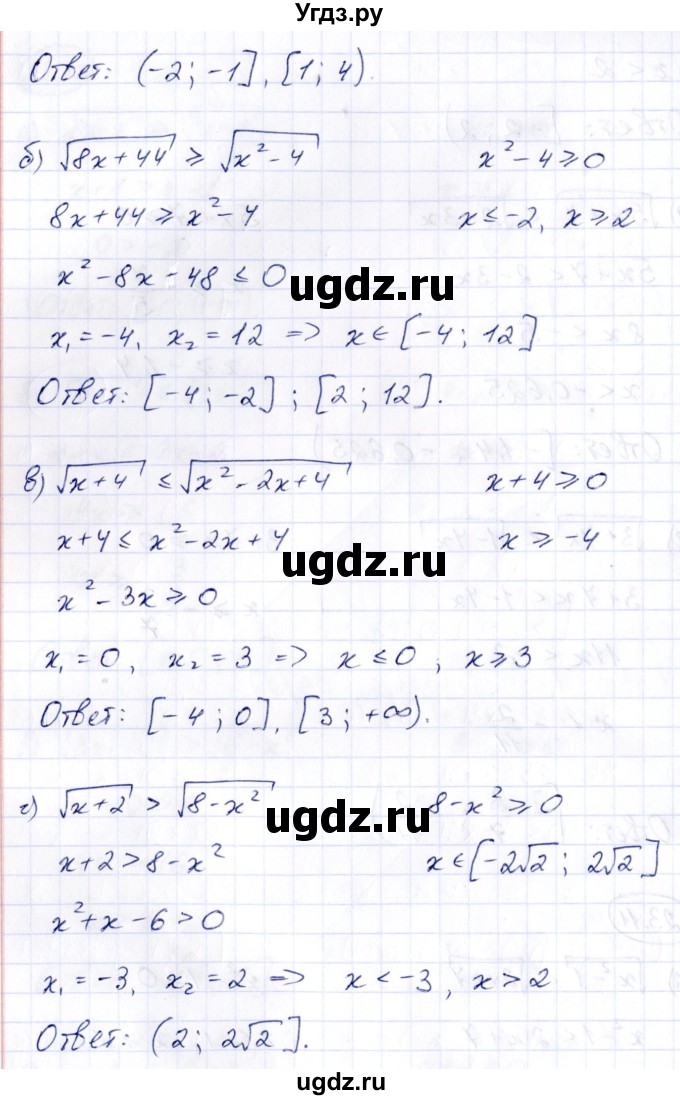 Угдз.ру
Ответ: (-2; -1], [1; 4).
б) √(8x+44) ≥ √(x²-4) x²-4≥0
8x+44 ≥ x²-4 x≤-2, x≥2
x²-8x-48 ≤ 0
ugdz.ru
x₁=-4, x₂=12 => x∈[-4; 12]
Ответ: [-4; -2]; [2; 12].
в) √(x+4) ≤ √(x²-2x+4) x+4≥0
x+4 ≤ x²-2x+4 x ≥ -4
ugdz.ru
x²-3x ≥ 0
x₁=0, x₂=3 => x≤0; x≥3
Ответ: [-4; 0], [3; +∞).
г) √(x+2) > √(8-x²) 8-x²≥0
ugdz.ru
x+2>8-x² x∈[-2√2; 2√2]
x²+x-6>0
x₁=-3, x₂=2 => x<-3, x>2
Ответ: (2; 2√2].
ugdz.ru